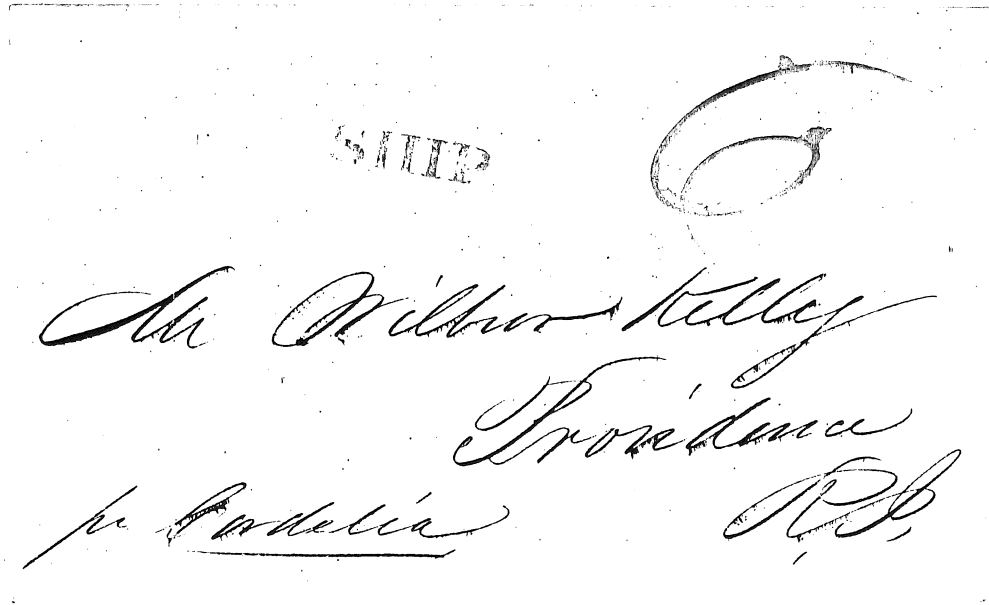 SHIP 6
Mr Wilbur Kelly
Providence
R.I.
pr Cordelia